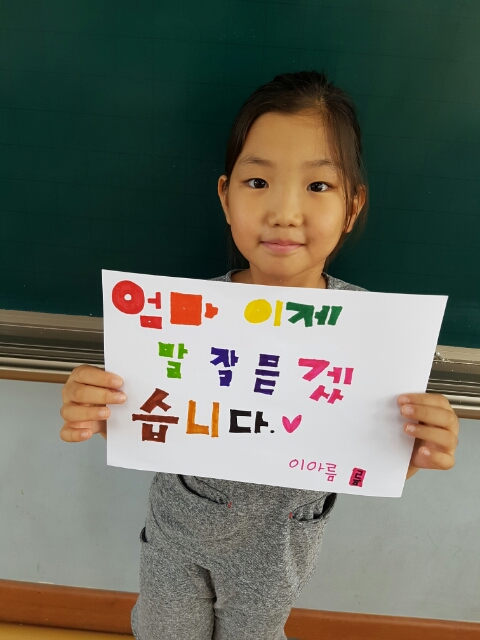 엄마 이제
말 잘 듣겟
습니다.♥
이아름